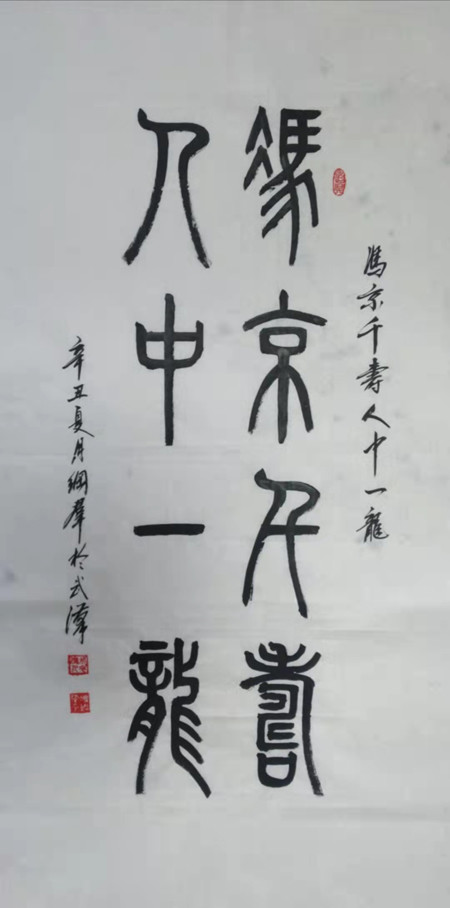 馮京千壽人中一龍
馮京千壽
人中一龍
辛丑夏月綱群於武漢